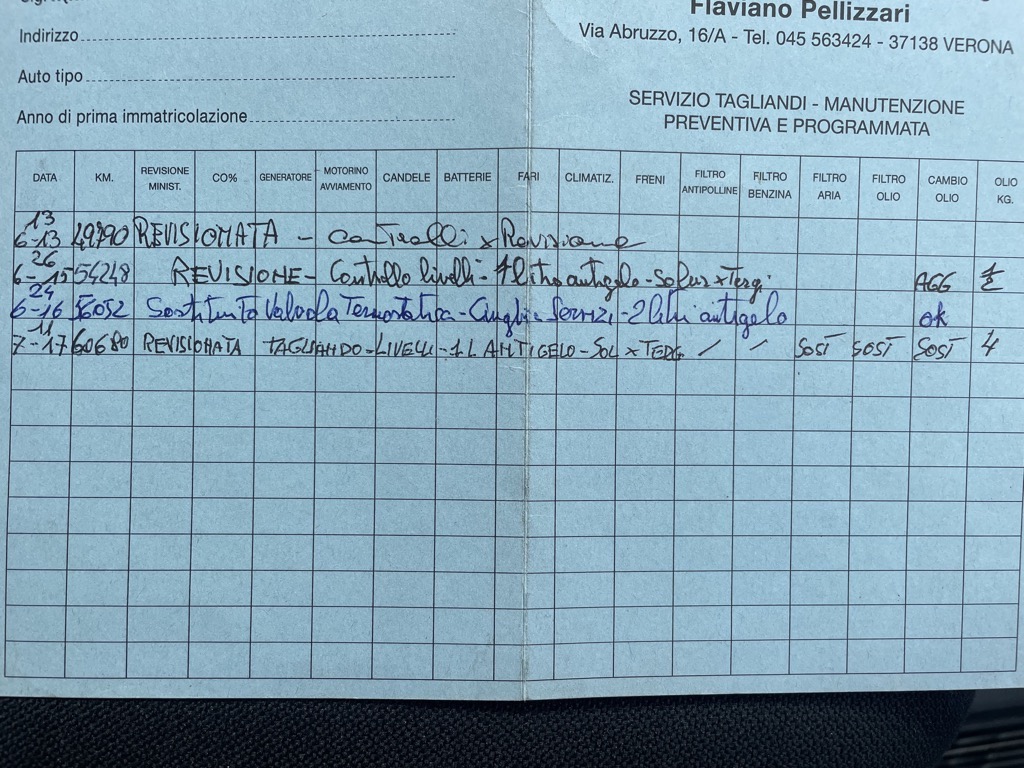 Flaviano Pellizzari
Indirizzo
Via Abruzzo, 16/A - Tel. 045 563424 - 37138 VERONA
Auto tipo
Anno di prima immatricolazione
SERVIZIO TAGLIANDI - MANUTENZIONE
PREVENTIVA E PROGRAMMATA
DATA KM. REVISIONE MINIST. CO% GENERATORE MOTORINO AVVIAMENTO CANDELE BATTERIE FARI CLIMATIZ. FRENI FILTRO ANTIPOLLINE FILTRO BENZINA FILTRO ARIA FILTRO OLIO CAMBIO OLIO OLIO KG.
13
6-13 49790 REVISIONATA - Controlli x Revisione
26
6-15 54248 REVISIONE - Controllo livelli - 1 litro antigelo - Solux x Tergi AGG 1/2
24
6-16 56052 Sostituito Valvola Termostatica - Cinghia Servizi - 2 litri antigelo ok
11
7-17 60680 REVISIONATA TAGLIANDO - LIVELLI - 1 L ANTIGELO - SOL x TERG / / SOST SOST SOST 4